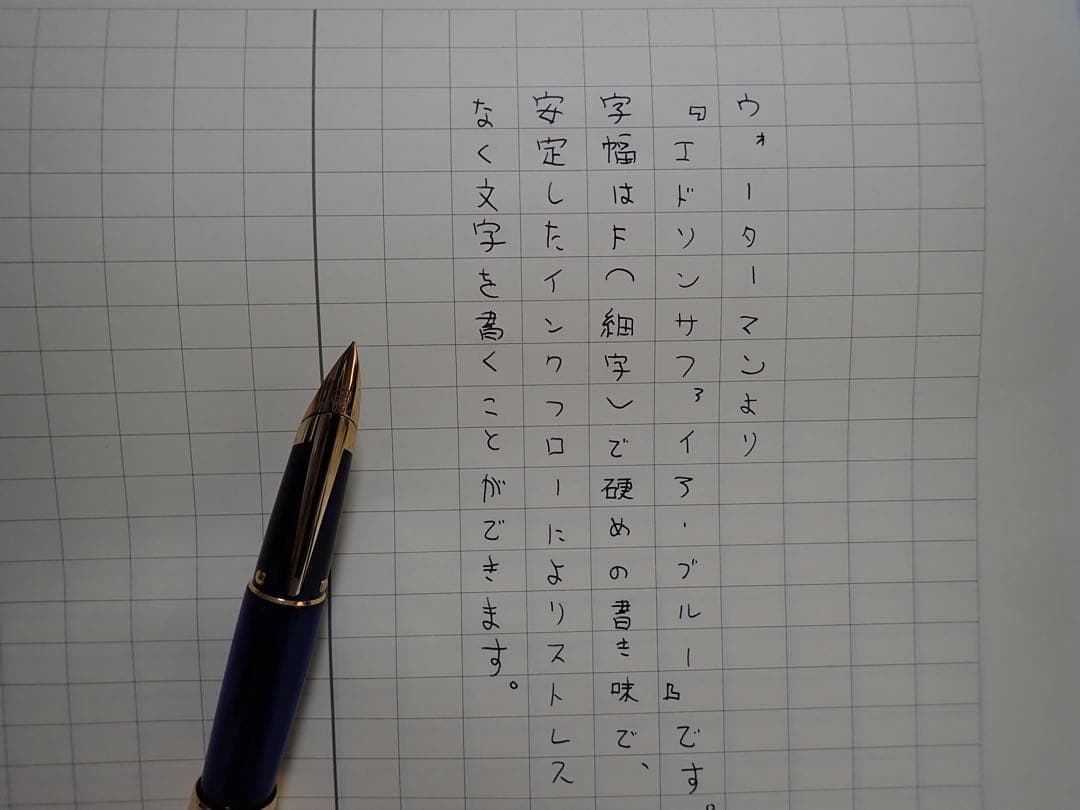 ウォーターマンより
『エドソンサファイア・ブルー』です。
字幅はF(細字)で硬めの書き味で、
安定したインクフローによりストレス
なく文字を書くことができます。